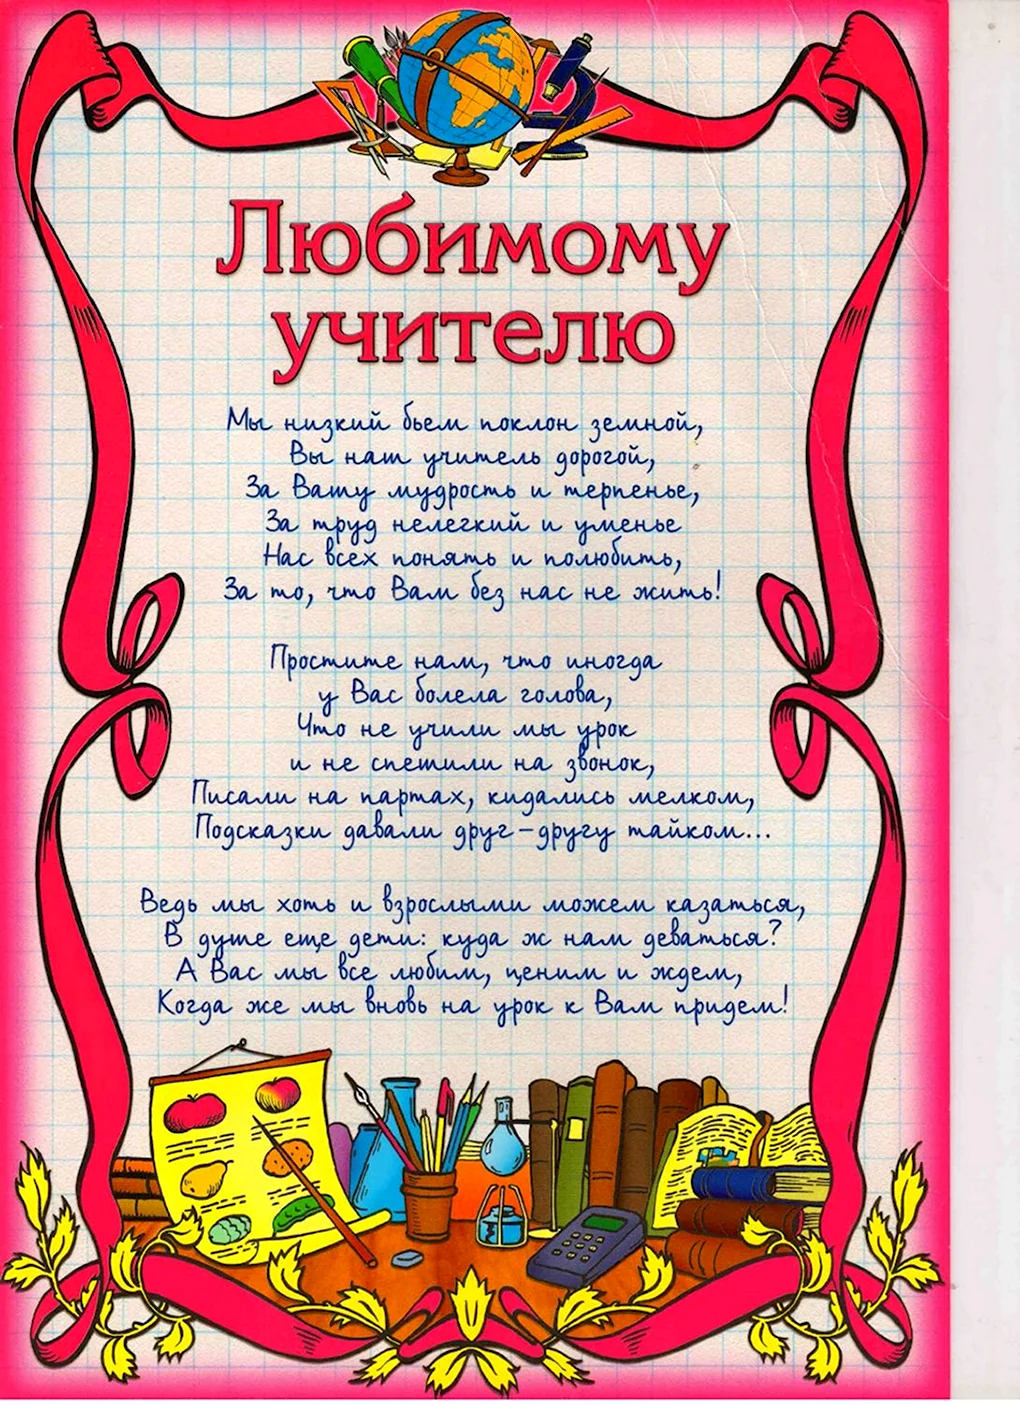 Любимому
учителю
Мы низкий бьем поклон земной,
Вы наш учитель дорогой,
За Вашу мудрость и терпенье,
За труд нелегкий и уменье
Нас всех понять и полюбить,
За то, что Вам без нас не жить!
Простите нам, что иногда
у Вас болела голова,
Что не учили мы урок
и не спешили на звонок,
Писали на партах, кидались мелком,
Подсказки давали друг-другу тайком...
Ведь мы хоть и взрослыми можем казаться,
В душе еще дети: куда ж нам деваться?
А Вас мы все любим, ценим и ждем,
Когда же мы вновь на урок к Вам придем!